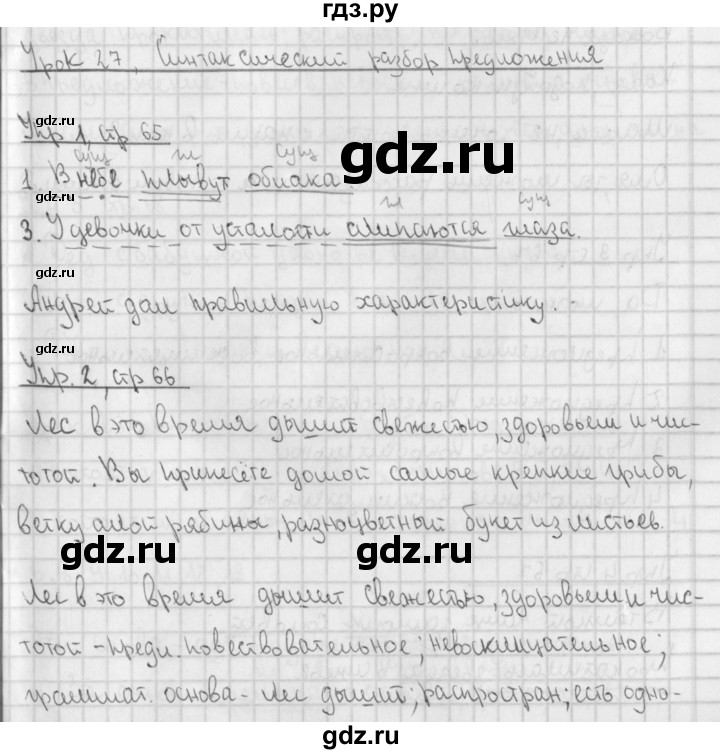 гдз.ру
Урок 27, Синтаксический разбор предложения
gdz.ru
Упр 1, стр 65
сущ гл сущ
1. В небе плывут облака.
gdz.ru
gdz.ru
гл сущ
3. У девочки от усталости слипаются глаза.
gdz.ru
Андрей дал правильную характеристику.
gdz.ru
Упр. 2, стр 66
Лес в это время дышит свежестью, здоровьем и чис-
тотой. Вы принесёте домой самые крепкие грибы,
ветку алой рябины, разноцветный букет из листьев.
gdz.ru gdz.ru
Лес в это время дышит свежестью, здоровьем и чис-
тотой - предл. повествовательное; невосклицательное;
граммат. основа - лес дышит; распростран; есть одно-